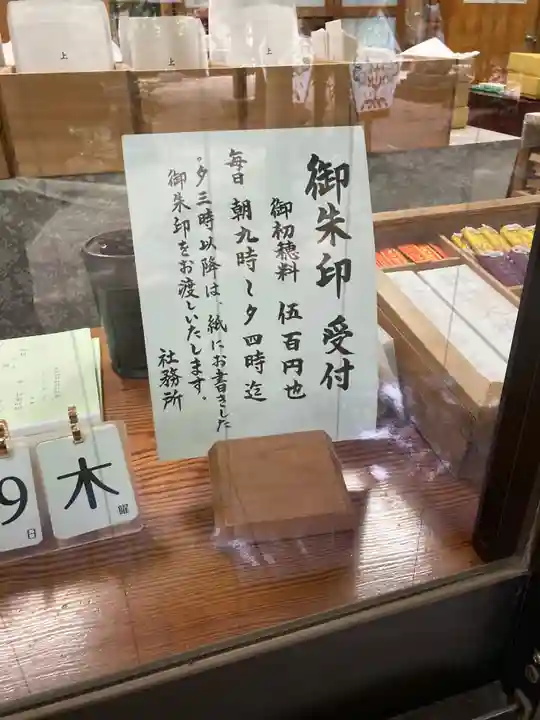 御朱印 受付
御初穂料 伍百円也
毎日 朝九時〜夕四時迄
夕三時以降は、紙にお書きした
御朱印をお渡しいたします。
社務所
上
上
9
日
木
曜